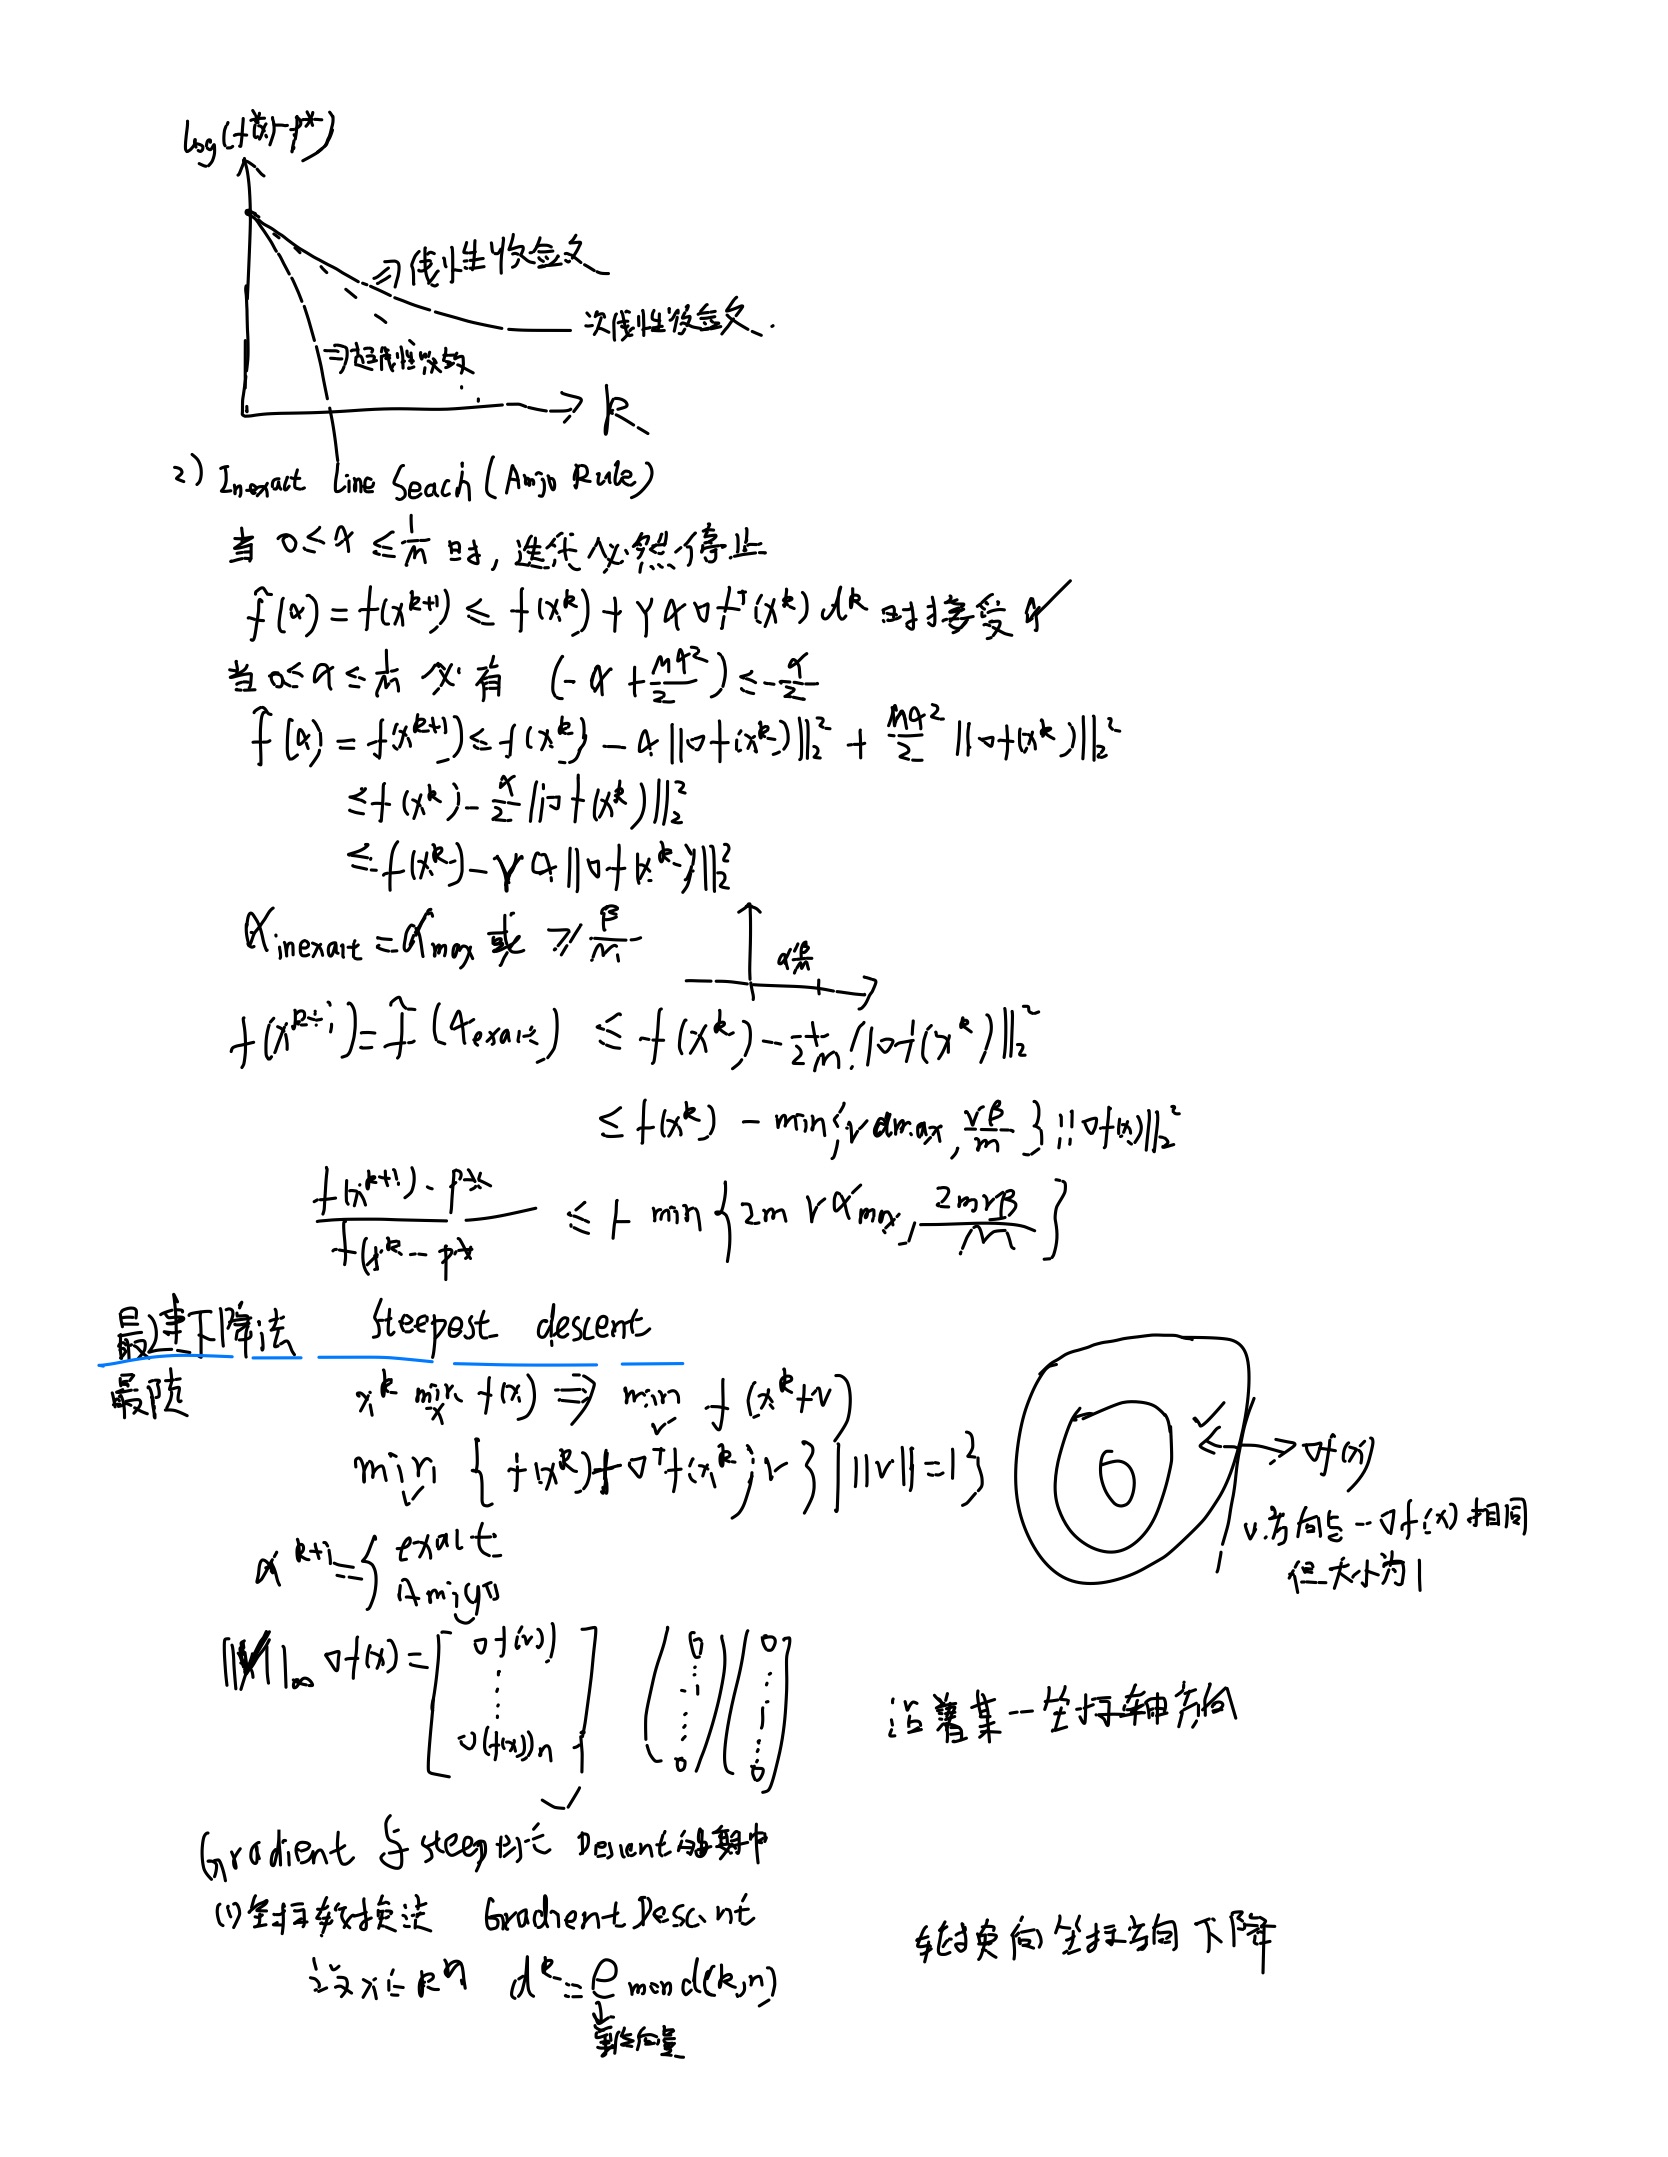 log(f(x^k)-p*)
⇒线性收敛
次线性收敛
⇒超线性收敛
k
2) Inexact Line Seach (Amijo Rule)
当 0≤α≤1/M 时, 迭代必然停止
f̂(α) = f(x^{k+1}) ≤ f(x^k) + γα∇f^T(x^k) d^k 时接受α
当 0≤α≤1/M 必有 (-α + Mα²/2) ≤ -α/2
f̂(α) = f(x^{k+1}) ≤ f(x^k) - α||∇f(x^k)||₂² + Mα²/2 ||∇f(x^k)||₂²
≤ f(x^k) - α/2 ||∇f(x^k)||₂²
≤ f(x^k) - γα||∇f(x^k)||₂²
α_inexact = α_max 或 ≥ β/M
α β/M
f(x^{k+1}) = f̂(α_exact) ≤ f(x^k) - 1/2M ||∇f(x^k)||₂²
≤ f(x^k) - min{γαmax, γβ/M} ||∇f(x)||₂²
(f(x^{k+1}) - p*)/(f(x^k - p*) ≤ 1- min{2mγαmax, 2mγβ/M}
最速下降法 Steepest descent
最陡 x^k min_x f(x) ⇒ min_v f(x^k+v)
min_v { f(x^k) + ∇^T f(x^k) v } | ||v|| = 1}
v
∇f(x)
v.方向与-∇f(x)相同
但大小为1
α^{k+1} = { exact
Amigo
|| ||∞ ∇f(x) = [∇f(v)) ⋮ ∇(f(x))n] (0 ⋮ 1 ⋮ 0) (0 ⋮ 1 ⋮ 0)
沿着某一坐标轴方向
Gradient 与 steepest Descent
(1) 坐标转换法 Gradient Descent
轮换向坐标方向下降
设 x∈R^n d^k = e mod(k,n)
向量